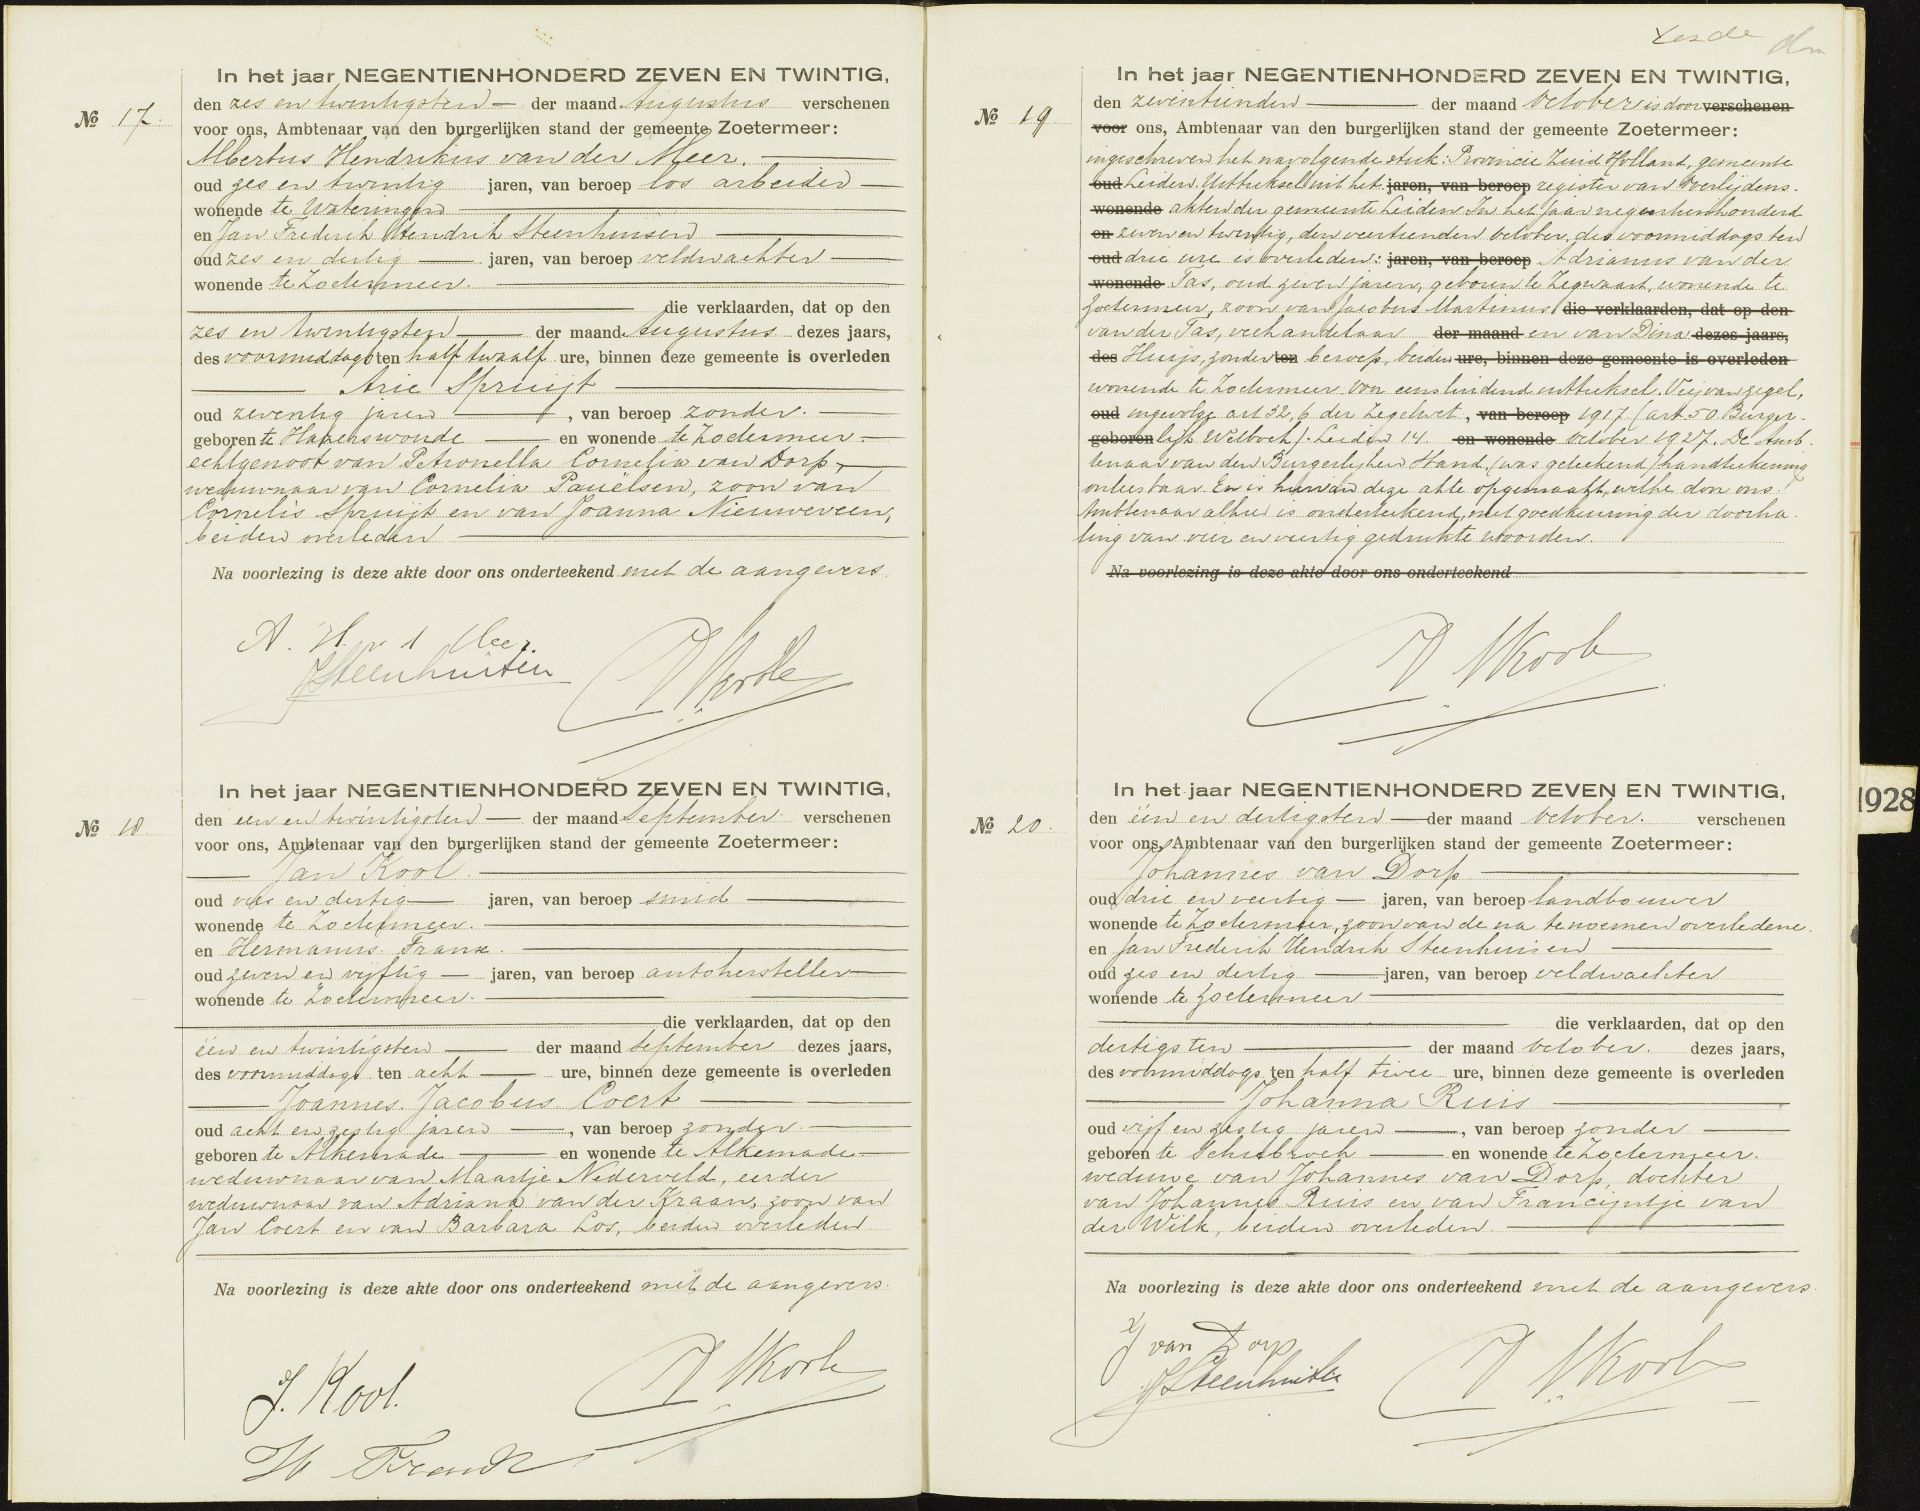 In het jaar NEGENTIENHONDERD ZEVEN EN TWINTIG,
№ 17.
den zes en twintigsten — der maand Augustus verschenen
voor ons, Ambtenaar van den burgerlijken stand der gemeente Zoetermeer:
Albertus Hendrikus van der Meer.
oud zes en twintig jaren, van beroep los arbeider
wonende te Wateringen
en Jan Frederik Hendrik Steenhuisen
oud zes en dertig jaren, van beroep veldwachter
wonende te Zoetermeer.
die verklaarden, dat op den
zes en twintigsten der maand Augustus dezes jaars,
des voormiddags ten half twaalf ure, binnen deze gemeente is overleden
Arie Spruijt
oud zeventig jaren, van beroep zonder.
geboren te Hazerswoude en wonende te Zoetermeer
echtgenoot van Petronella Cornelia van Dorp,
weduwnaar van Cornelia Pauëlsen, zoon van
Cornelis Spruijt en van Joanna Nieuweveen,
beiden overleden
Na voorlezing is deze akte door ons onderteekend met de aangevers.
A. H. v d Meer
JSteenhuisen
In het jaar NEGENTIENHONDERD ZEVEN EN TWINTIG,
№ 18
den een en twintigsten — der maand September verschenen
voor ons, Ambtenaar van den burgerlijken stand der gemeente Zoetermeer:
Jan Kool
oud vier en dertig jaren, van beroep smid
wonende te Zoetermeer.
en Hermanus Frank.
oud zeven en vijftig jaren, van beroep autohersteller
wonende te Zoetermeer.
die verklaarden, dat op den
één en twintigsten der maand September dezes jaars,
des voormiddags ten acht ure, binnen deze gemeente is overleden
Joannes Jacobus Coert
oud acht en zestig jaren, van beroep zonder
geboren te Alkemade en wonende te Alkemade
weduwnaar van Maartje Nederveld, eerder
weduwnaar van Adriana van der Kraan, zoon van
Jan Coert en van Barbara Los, beiden overleden
Na voorlezing is deze akte door ons onderteekend met de aangevers.
J. Kool.
H Frank
In het jaar NEGENTIENHONDERD ZEVEN EN TWINTIG,
№ 19
den zeventienden der maand October is door verschenen
voor ons, Ambtenaar van den burgerlijken stand der gemeente Zoetermeer:
ingeschreven het navolgende stuk: Provincie Zuid Holland, gemeente
oud Leiden. Uittreksel uit het jaren, van beroep register van overlijdens-
wonende akten der gemeente Leiden. In het jaar negentienhonderd
en zeven en twintig, den veertienden October, des voormiddags ten
oud drie ure is overleden: jaren, van beroep Adrianus van der
wonende Tas, oud zeven jaren, geboren te Zegwaart, wonende te
Zoetermeer, zoon van Jacobus Martinus die verklaarden, dat op den
van der Tas, veehandelaar der maand en van Dina dezes jaars,
des Huijs, zonder ten beroep, beiden ure, binnen deze gemeente is overleden
wonende te Zoetermeer. Voor eensluidend uittreksel. Vrij van zegel,
oud ingevolge art 32, 6 der Zegelwet, van beroep 1917 (art 50 Burger-
geboren lijk Wetboek). Leiden 14 en wonende October 1927. De Amb-
tenaar van den Burgerlijken Stand, (was geteekend) handteekening
onleesbaar. En is hiervan deze akte opgemaakt, welke door ons.
Ambtenaar alhier is onderteekend, met goedkeuring der doorha-
ling van vier en veertig gedrukte woorden.
Na voorlezing is deze akte door ons onderteekend
In het jaar NEGENTIENHONDERD ZEVEN EN TWINTIG,
№ 20.
den één en dertigsten der maand October. verschenen
voor ons, Ambtenaar van den burgerlijken stand der gemeente Zoetermeer:
Johannes van Dorp
oud drie en veertig jaren, van beroep landbouwer
wonende te Zoetermeer, zoon van de na te noemen overledene.
en Jan Frederik Hendrik Steenhuisen
oud zes en dertig jaren, van beroep veldwachter
wonende te Zoetermeer
die verklaarden, dat op den
dertigsten der maand October. dezes jaars,
des voormiddags ten half twee ure, binnen deze gemeente is overleden
Johanna Ruis
oud vijf en zestig jaren, van beroep zonder
geboren te Schubroek en wonende te Zoetermeer.
weduwe van Johannes van Dorp, dochter
van Johannes Ruis en van Francijntje van
der Wilk, beiden overleden.
Na voorlezing is deze akte door ons onderteekend met de aangevers.
J van Dorp
JSteenhuisen
1928